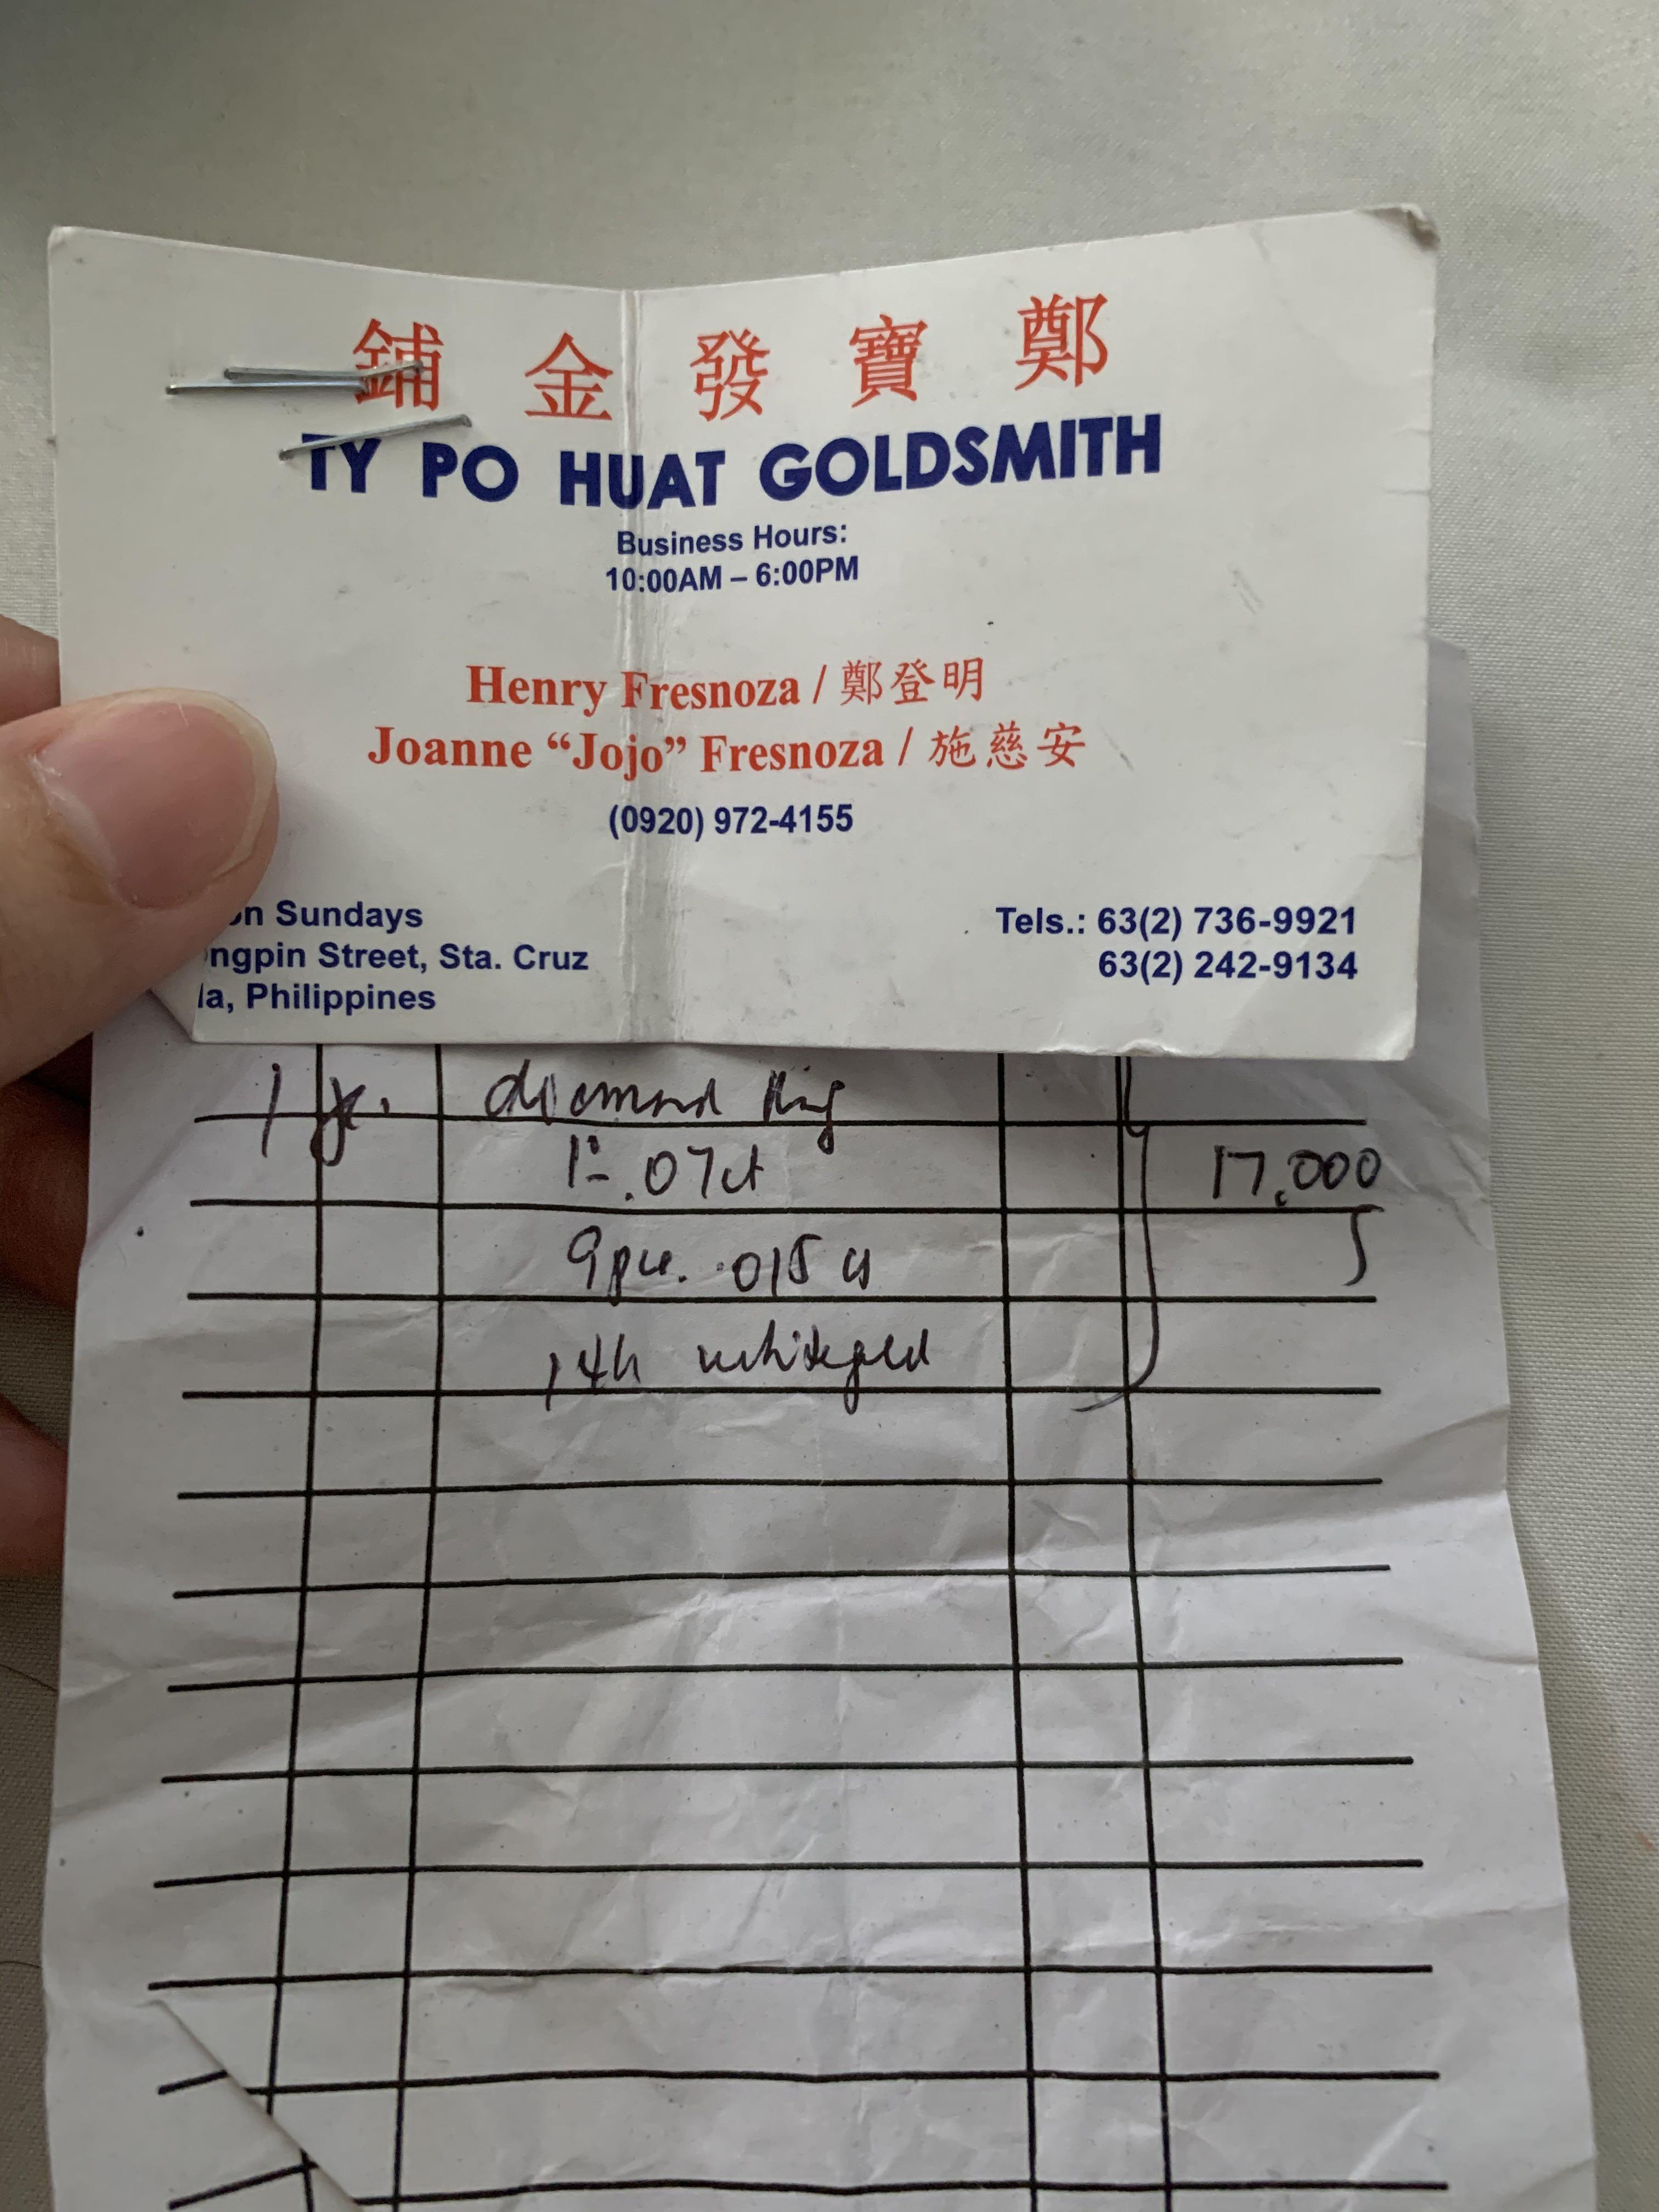 鄭寶發金鋪
TY PO HUAT GOLDSMITH
Business Hours:
10:00AM – 6:00PM
Henry Fresnoza / 鄭登明
Joanne “Jojo” Fresnoza / 施慈安
(0920) 972-4155
on Sundays
ngpin Street, Sta. Cruz
la, Philippines
Tels.: 63(2) 736-9921
63(2) 242-9134
1 diamond Ring
1- .07ct 17,000
9pcs. .015 ct
14k whitegold